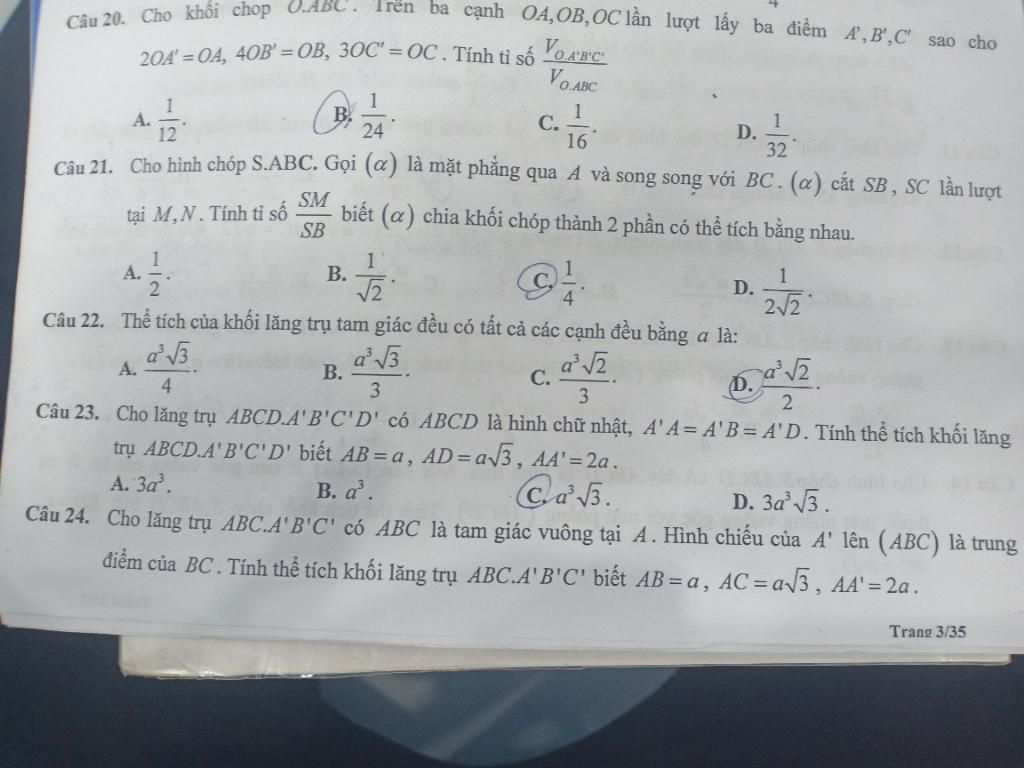 Câu 20. Cho khối chop O.ABC. Trên ba cạnh OA,OB,OC lần lượt lấy ba điểm A',B',C' sao cho
2OA' = OA, 4OB' = OB, 3OC' = OC. Tính tỉ số V_{O.A'B'C'}/V_{O.ABC}
A. 1/12. B. 1/24. C. 1/16. D. 1/32.
Câu 21. Cho hình chóp S.ABC. Gọi (α) là mặt phẳng qua A và song song với BC. (α) cắt SB, SC lần lượt
tại M,N. Tính tỉ số SM/SB biết (α) chia khối chóp thành 2 phần có thể tích bằng nhau.
A. 1/2. B. 1/√2. C. 1/4. D. 1/(2√2).
Câu 22. Thể tích của khối lăng trụ tam giác đều có tất cả các cạnh đều bằng a là:
A. a³√3/4. B. a³√3/3. C. a³√2/3. D. a³√2/2.
Câu 23. Cho lăng trụ ABCD.A'B'C'D' có ABCD là hình chữ nhật, A'A = A'B = A'D. Tính thể tích khối lăng
trụ ABCD.A'B'C'D' biết AB = a, AD = a√3, AA' = 2a.
A. 3a³. B. a³. C. a³√3. D. 3a³√3.
Câu 24. Cho lăng trụ ABC.A'B'C' có ABC là tam giác vuông tại A. Hình chiếu của A' lên (ABC) là trung
điểm của BC. Tính thể tích khối lăng trụ ABC.A'B'C' biết AB = a, AC = a√3, AA' = 2a.
Trang 3/35